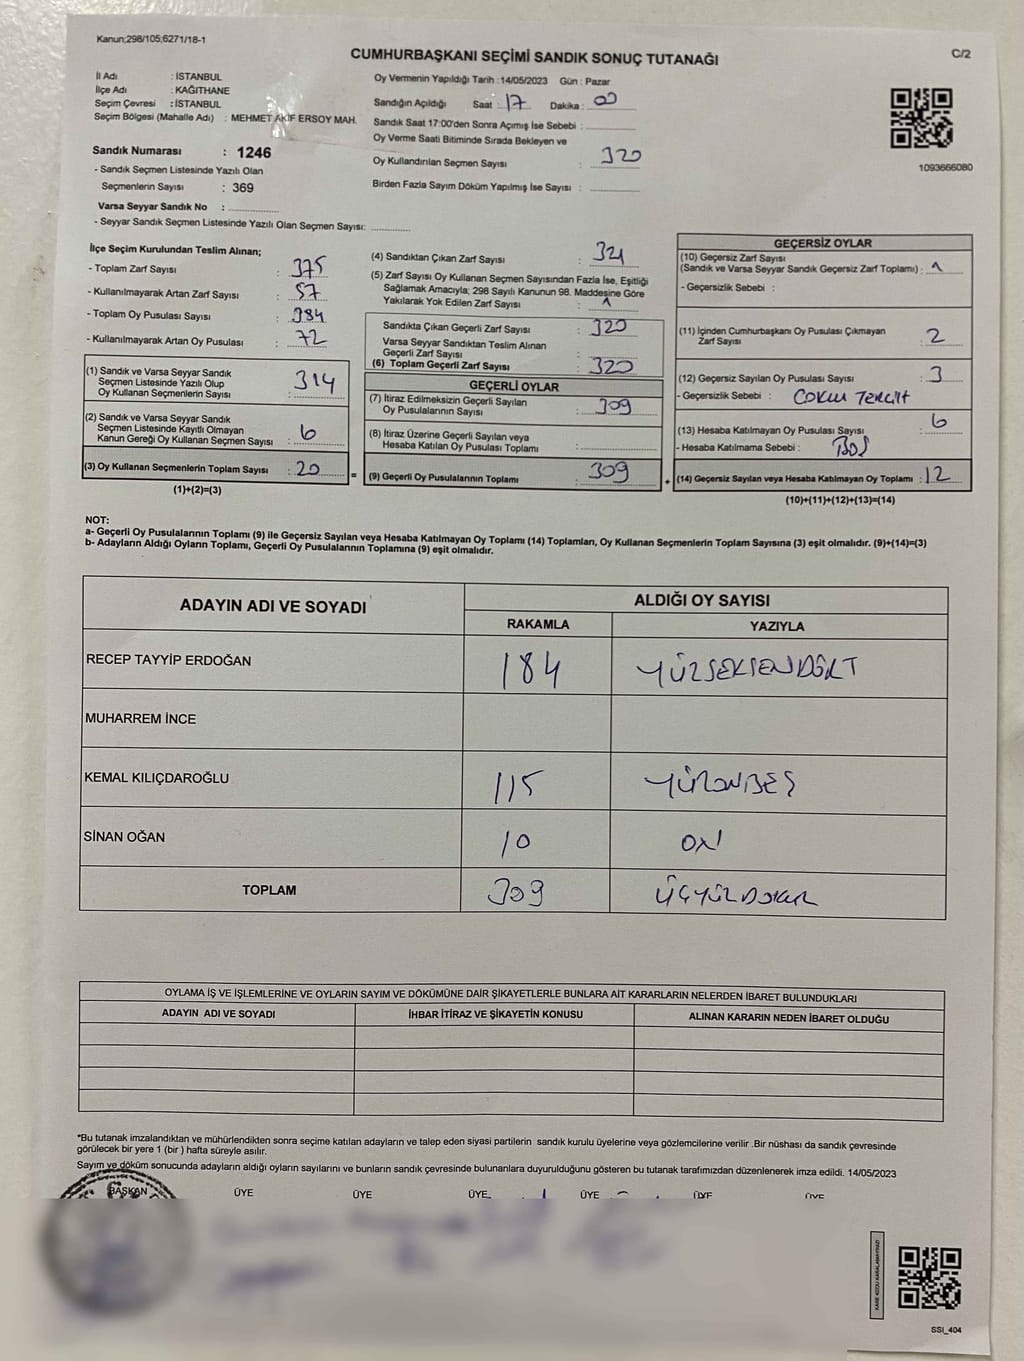 Kanun;298/105;6271/18-1
CUMHURBAŞKANI SEÇİMİ SANDIK SONUÇ TUTANAĞI
C/2
İl Adı : İSTANBUL
İlçe Adı : KAĞITHANE
Seçim Çevresi : İSTANBUL
Seçim Bölgesi (Mahalle Adı) : MEHMET AKİF ERSOY MAH.
Sandık Numarası : 1246
- Sandık Seçmen Listesinde Yazılı Olan
Seçmenlerin Sayısı : 369
Varsa Seyyar Sandık No :
- Seyyar Sandık Seçmen Listesinde Yazılı Olan Seçmen Sayısı:
Oy Vermenin Yapıldığı Tarih :14/05/2023 Gün : Pazar
Sandığın Açıldığı Saat : 17 Dakika : 00
Sandık Saat 17:00'den Sonra Açımış İse Sebebi :
Oy Verme Saati Bitiminde Sırada Bekleyen ve
Oy Kullandırılan Seçmen Sayısı : 320
Birden Fazla Sayım Döküm Yapılmış İse Sayısı :
1093666080
İlçe Seçim Kurulundan Teslim Alınan;
- Toplam Zarf Sayısı : 375
- Kullanılmayarak Artan Zarf Sayısı : 57
- Toplam Oy Pusulası Sayısı : 384
- Kullanılmayarak Artan Oy Pusulası : 72
(1) Sandık ve Varsa Seyyar Sandık
Seçmen Listesinde Yazılı Olup
Oy Kullanan Seçmenlerin Sayısı : 314
(2) Sandık ve Varsa Seyyar Sandık
Seçmen Listesinde Kayıtlı Olmayan
Kanun Gereği Oy Kullanan Seçmen Sayısı : 6
(3) Oy Kullanan Seçmenlerin Toplam Sayısı : 20
(1)+(2)=(3)
=
(4) Sandıktan Çıkan Zarf Sayısı : 321
(5) Zarf Sayısı Oy Kullanan Seçmen Sayısından Fazla İse, Eşitliği
Sağlamak Amacıyla; 298 Sayılı Kanunun 98. Maddesine Göre
Yakılarak Yok Edilen Zarf Sayısı : 1
Sandıkta Çıkan Geçerli Zarf Sayısı : 320
Varsa Seyyar Sandıktan Teslim Alınan
Geçerli Zarf Sayısı :
(6) Toplam Geçerli Zarf Sayısı : 320
GEÇERLİ OYLAR
(7) İtiraz Edilmeksizin Geçerli Sayılan
Oy Pusulalarının Sayısı : 309
(8) İtiraz Üzerine Geçerli Sayılan veya
Hesaba Katılan Oy Pusulası Toplamı :
(9) Geçerli Oy Pusulalarının Toplamı : 309
+
GEÇERSİZ OYLAR
(10) Geçersiz Zarf Sayısı
(Sandık ve Varsa Seyyar Sandık Geçersiz Zarf Toplamı) : 1
- Geçersizlik Sebebi :
(11) İçinden Cumhurbaşkanı Oy Pusulası Çıkmayan
Zarf Sayısı : 2
(12) Geçersiz Sayılan Oy Pusulası Sayısı : 3
- Geçersizlik Sebebi :
(13) Hesaba Katılmayan Oy Pusulası Sayısı : 6
- Hesaba Katılmama Sebebi : BOŞ
(14) Geçersiz Sayılan veya Hesaba Katılmayan Oy Toplamı : 12
(10)+(11)+(12)+(13)=(14)
NOT:
a- Geçerli Oy Pusulalarının Toplamı (9) ile Geçersiz Sayılan veya Hesaba Katılmayan Oy Toplamı (14) Toplamları, Oy Kullanan Seçmenlerin Toplam Sayısına (3) eşit olmalıdır. (9)+(14)=(3)
b- Adayların Aldığı Oyların Toplamı, Geçerli Oy Pusulalarının Toplamına (9) eşit olmalıdır.
ADAYIN ADI VE SOYADI
ALDIĞI OY SAYISI
RAKAMLA YAZIYLA
RECEP TAYYİP ERDOĞAN 184 YÜZSEKSENDÖRT
MUHARREM İNCE
KEMAL KILIÇDAROĞLU 115 YÜZONBEŞ
SİNAN OĞAN 10 ON
TOPLAM 309 ÜÇYÜZDOKUZ
OYLAMA İŞ VE İŞLEMLERİNE VE OYLARIN SAYIM VE DÖKÜMÜNE DAİR ŞİKAYETLERLE BUNLARA AİT KARARLARIN NELERDEN İBARET BULUNDUKLARI
ADAYIN ADI VE SOYADI İHBAR İTİRAZ VE ŞİKAYETİN KONUSU ALINAN KARARIN NEDEN İBARET OLDUĞU
*Bu tutanak imzalandıktan ve mühürlendikten sonra seçime katılan adayların ve talep eden siyasi partilerin sandık kurulu üyelerine veya gözlemcilerine verilir .Bir nüshası da sandık çevresinde
görülecek bir yere 1 (bir ) hafta süreyle asılır.
Sayım ve döküm sonucunda adayların aldığı oyların sayılarını ve bunların sandık çevresinde bulunanlara duyurulduğunu gösteren bu tutanak tarafımızdan düzenlenerek imza edildi. 14/05/2023
BAŞKAN ÜYE ÜYE ÜYE ÜYE ÜYE ÜYE
KARE KODU KARALAMAYINIZ!
SSİ_404